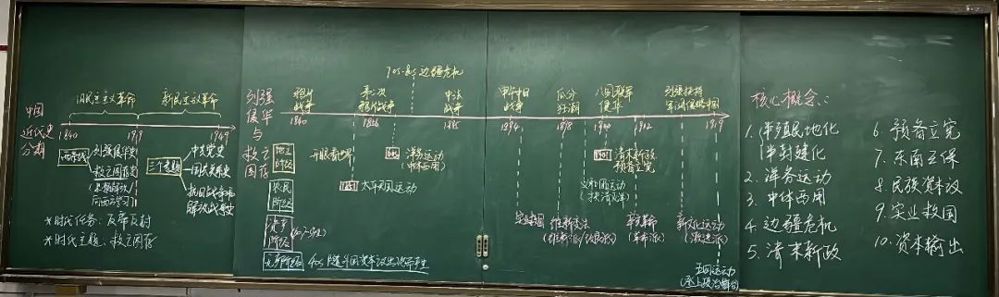 中国
近代史
分期
旧民主主义革命
新民主主义革命
1840
1919
1949
两条线
列强侵华史
救亡图存史
三个专题
中共党史
国共关系史
抗日战争
解放战争史
*时代任务：反帝反封
*时代主题：救亡图存
列强
侵华
与
救亡
图存
70s-80s边疆危机
鸦片
战争
1840
第二次
鸦片战争
1856
中法
战争
1885
甲午中日
战争
1894
瓜分
狂潮
1898
八国联军
侵华
1900
1912
1919
地主
阶级
开眼看世界
洋务运动
(中体西用)
清末新政
预备立宪
农民
阶级
1851
太平天国运动
义和团运动
(扶清灭洋)
资产
阶级
实业救国
维新变法
辛亥革命
(革命派)
新文化运动
(激进派)
无产阶级
五四运动
(登上政治舞台)
核心概念：
1. 半殖民地化
半封建化
2. 洋务运动
3. 中体西用
4. 边疆危机
5. 清末新政
6. 预备立宪
7. 东南互保
8. 民族资本
9. 实业救国
10. 资本输出